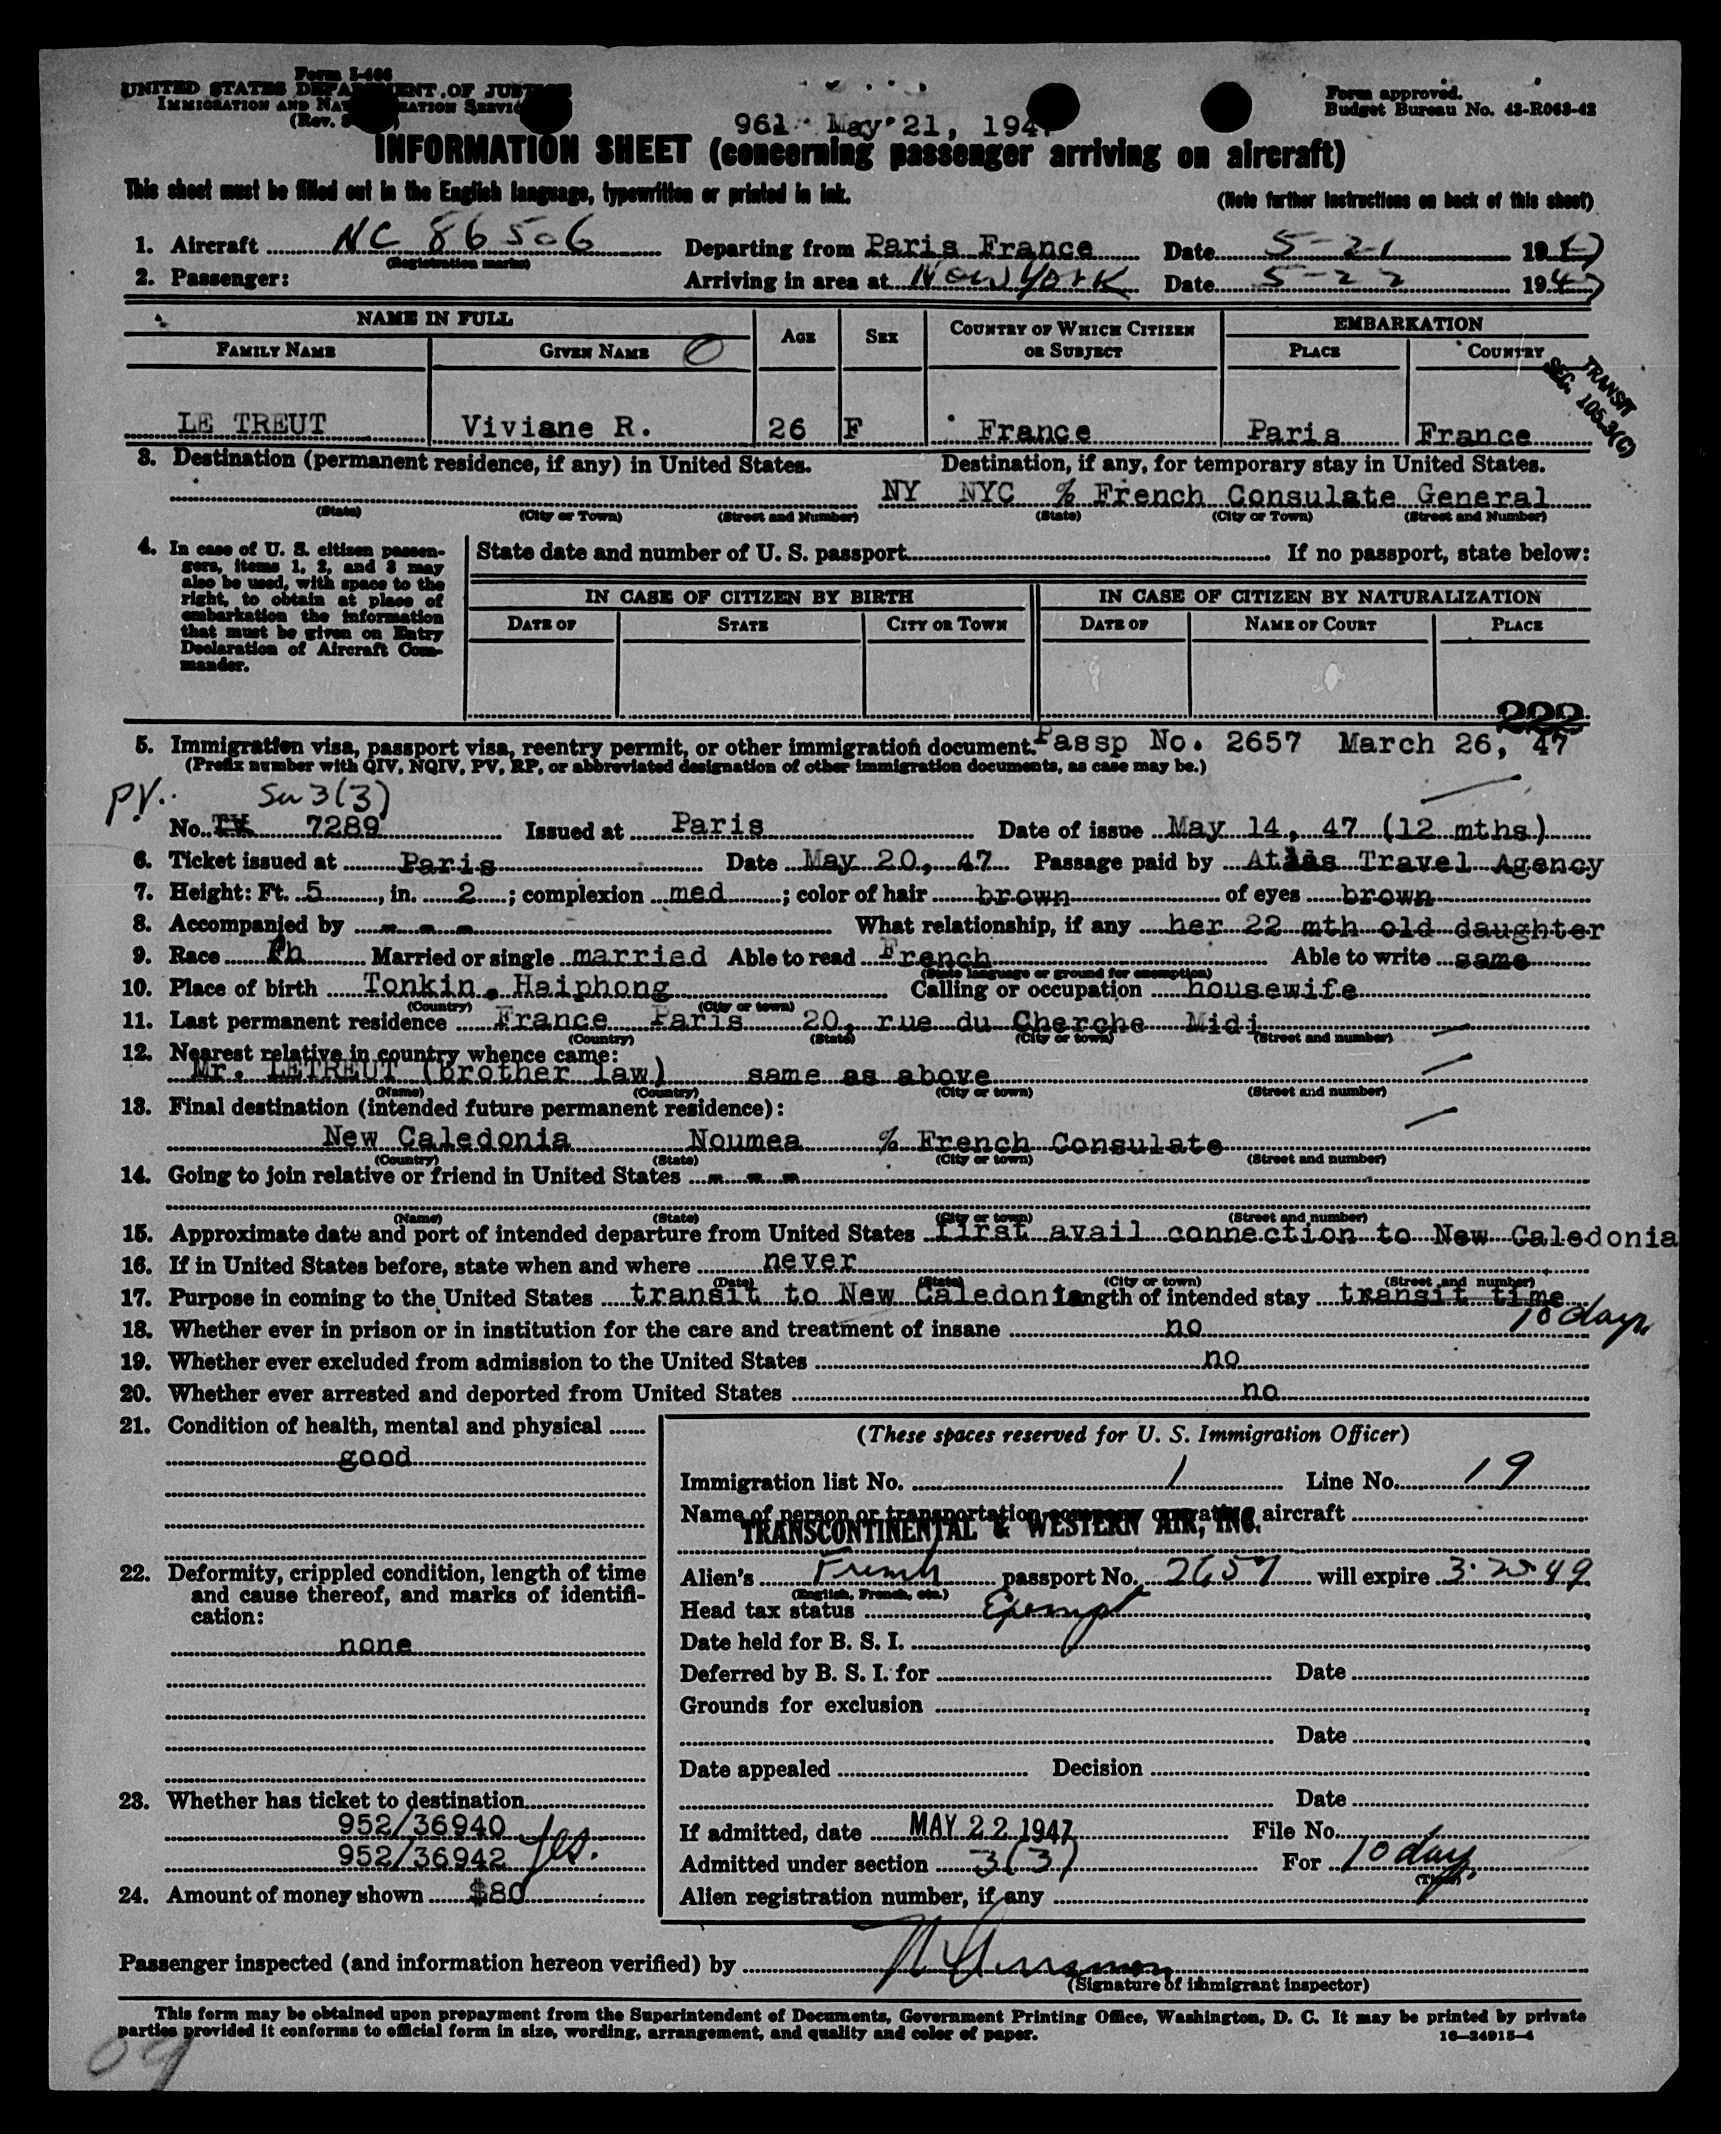 Form I-466
UNITED STATES DEPARTMENT OF JUSTICE
IMMIGRATION AND NATURALIZATION SERVICE
(Rev.
Form approved.
Budget Bureau No. 43-R063-42
961 May 21, 194
INFORMATION SHEET (concerning passenger arriving on aircraft)
This sheet must be filled out in the English language, typewritten or printed in ink.
(Note further instructions on back of this sheet)
1. Aircraft NC 86506 Departing from Paris France Date 5-21 1947
(Registration marks)
2. Passenger: Arriving in area at New York Date 5-22 1947
NAME IN FULL AGE SEX COUNTRY OF WHICH CITIZEN OR SUBJECT EMBARKATION
FAMILY NAME GIVEN NAME PLACE COUNTRY
TRANSIT
SEC. 105.3(C)
LE TREUT Viviane R. 26 F France Paris France
3. Destination (permanent residence, if any) in United States. Destination, if any, for temporary stay in United States.
NY NYC % French Consulate General
(State) (City or Town) (Street and Number) (State) (City or Town) (Street and Number)
4. In case of U. S. citizen passengers, items 1, 2, and 3 may also be used, with space to the right, to obtain at place of embarkation the information that must be given on Entry Declaration of Aircraft Commander.
State date and number of U. S. passport If no passport, state below:
IN CASE OF CITIZEN BY BIRTH IN CASE OF CITIZEN BY NATURALIZATION
DATE OF STATE CITY OR TOWN DATE OF NAME OF COURT PLACE
222
5. Immigration visa, passport visa, reentry permit, or other immigration document. Passp No. 2657 March 26, 47
(Prefix number with QIV, NQIV, PV, RP, or abbreviated designation of other immigration documents, as case may be.)
PV. Sec 3(3)
No. TV 7289 Issued at Paris Date of issue May 14, 47 (12 mths)
6. Ticket issued at Paris Date May 20, 47 Passage paid by Atlas Travel Agency
7. Height: Ft. 5, in. 2; complexion med; color of hair brown of eyes brown
8. Accompanied by - - - What relationship, if any her 22 mth old daughter
9. Race Married or single married Able to read French Able to write same
(State language or ground for exemption)
10. Place of birth Tonkin. Haiphong Calling or occupation housewife
(Country) (City or town)
11. Last permanent residence France Paris 20, rue du Cherche Midi
(Country) (State) (City or town) (Street and number)
12. Nearest relative in country whence came:
Mr. LETREUT (brother law) same as above
(Name) (Country) (City or town) (Street and number)
13. Final destination (intended future permanent residence):
New Caledonia Noumea % French Consulate
(Country) (State) (City or town) (Street and number)
14. Going to join relative or friend in United States - - -
(Name) (State) (City or town) (Street and number)
15. Approximate date and port of intended departure from United States first avail connection to New Caledonia
16. If in United States before, state when and where never
(Date) (State) (City or town) (Street and number)
17. Purpose in coming to the United States transit to New Caledonia Length of intended stay transit time
10 days
18. Whether ever in prison or in institution for the care and treatment of insane no
19. Whether ever excluded from admission to the United States no
20. Whether ever arrested and deported from United States no
21. Condition of health, mental and physical
good
22. Deformity, crippled condition, length of time and cause thereof, and marks of identification:
none
23. Whether has ticket to destination
952/36940
952/36942 yes.
24. Amount of money shown $80
(These spaces reserved for U. S. Immigration Officer)
Immigration list No. 1 Line No. 19
Name of person or transportation company operating aircraft
TRANSCONTINENTAL & WESTERN AIR, INC.
Alien's French passport No. 2657 will expire 3-25-49
(English, French, etc.)
Head tax status Exempt
Date held for B. S. I.
Deferred by B. S. I. for Date
Grounds for exclusion
Date
Date appealed Decision
Date
If admitted, date MAY 22 1947 File No.
Admitted under section 3(3) For 10 days
(Time)
Alien registration number, if any
Passenger inspected (and information hereon verified) by
(Signature of immigrant inspector)
This form may be obtained upon prepayment from the Superintendent of Documents, Government Printing Office, Washington, D. C. It may be printed by private
parties provided it conforms to official form in size, wording, arrangement, and quality and color of paper.
16-24915-4